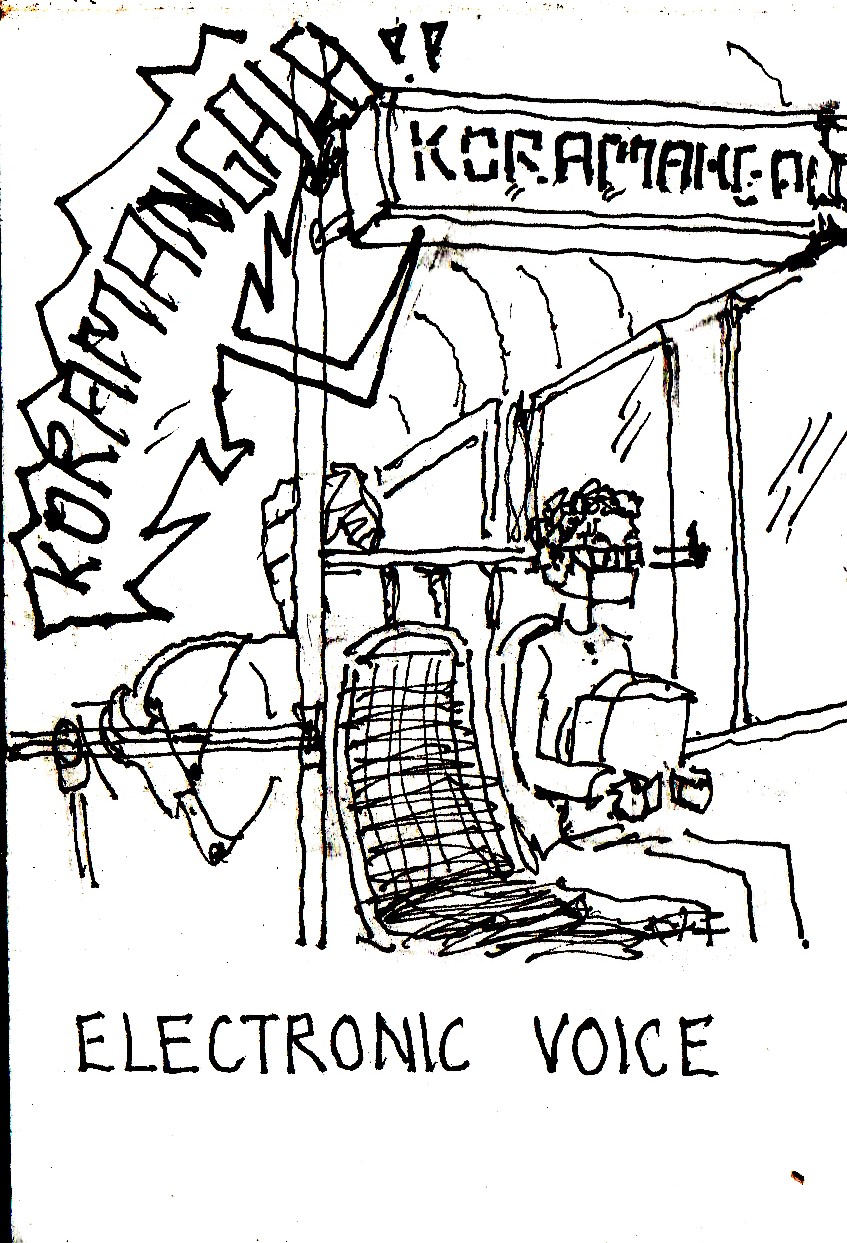 KORAMANGALA!!
KORAMANGAL
ELECTRONIC VOICE